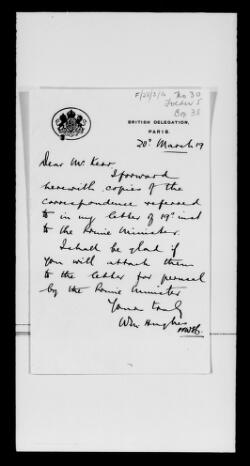 F/28/3/16 No 30
Folder 5
Box 38
BRITISH DELEGATION,
PARIS.
20th March 19
Dear Mr Kerr,
I forward
herewith copies of the
correspondence referred
to in my letter of 19th inst
to the Prime Minister.
I shall be glad if
you will attach them
to the letter for perusal
by the Prime Minister
Yours truly
Wm Hughes